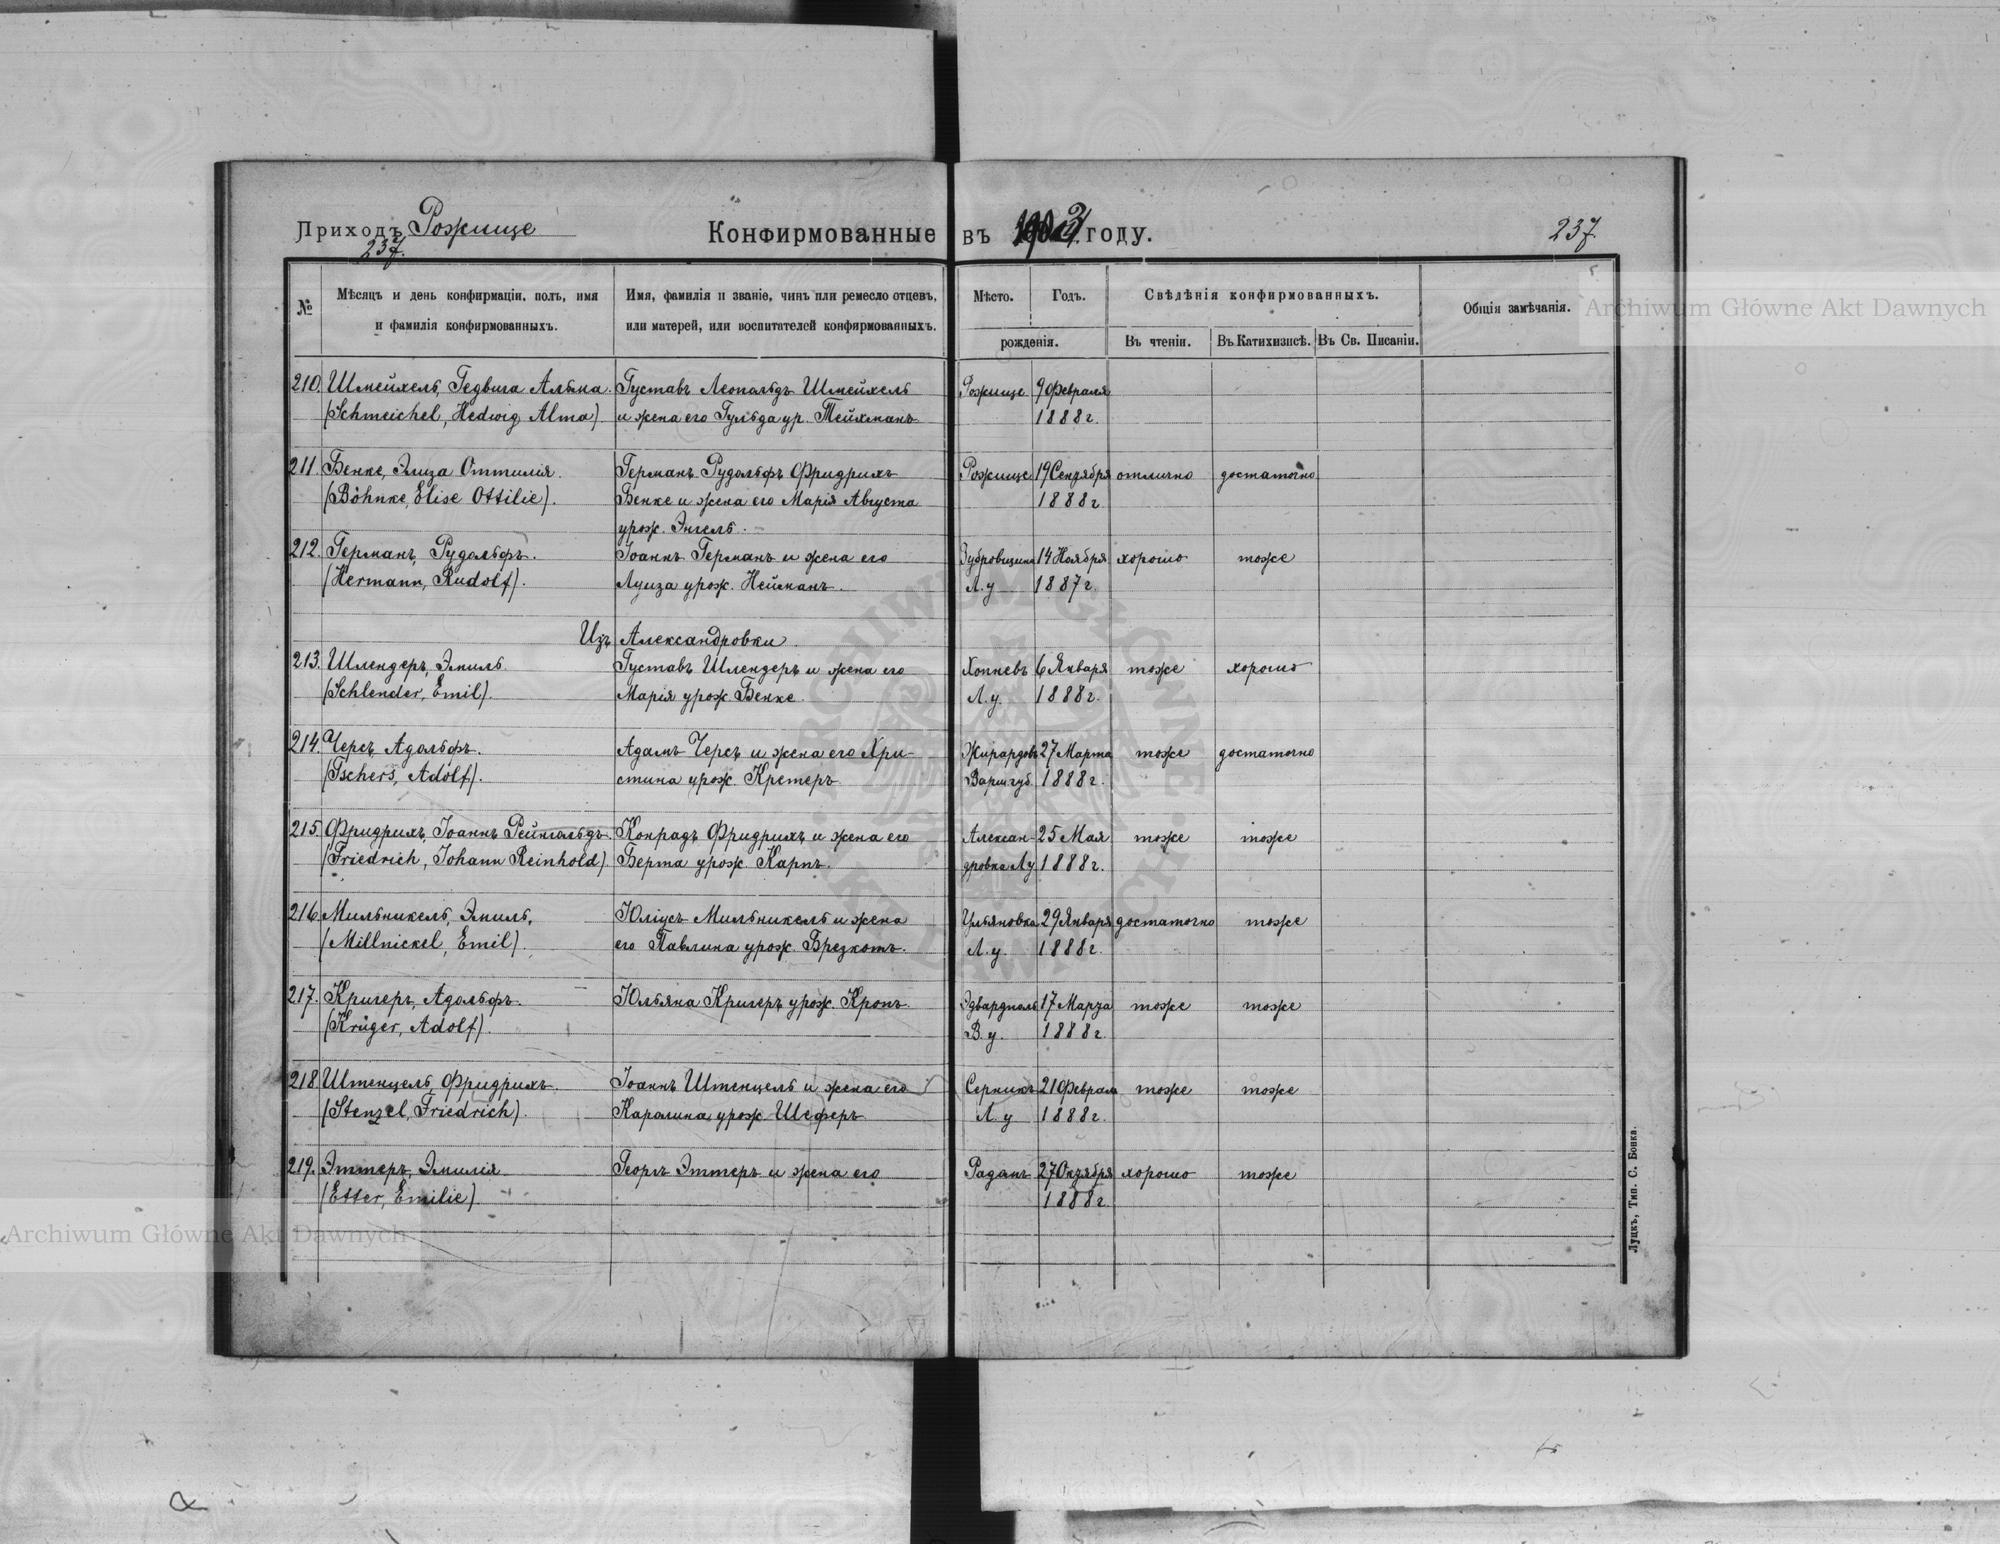 Приходъ Рожище
237.
Конфирмованные въ году.
237.
№
Мѣсяцъ и день конфирмаціи, полъ, имя
и фамилія конфирмованныхъ.
Имя, фамилія и званіе, чинъ или ремесло отцевъ,
или матерей, или воспитателей конфирмованныхъ.
Мѣсто. Годъ.
рожденія.
Свѣдѣнія конфирмованныхъ.
Въ чтеніи. Въ Катихизисѣ. Въ Св. Писаніи.
Общія замѣчанія.
210. Шмейхель, Гедвига Альма. Густавъ Леопольдъ Шмейхель Рожище 9 Февраля
(Schmeichel, Hedwig Alma). и жена его Гульда ур. Тейхманъ 1888 г.
211. Бенке, Элиза Оттилія. Германъ Рудольфъ Фридрихъ Рожище 19 Сентября отлично достаточно
(Böhnke, Elise Ottilie). Бенке и жена его Марія Августа 1888 г.
урож. Энгель.
212. Германъ, Рудольфъ. Іоаннъ Германъ и жена его Зубровщина 14 Ноября хорошо тоже
(Hermann, Rudolf). Луиза урож. Нейманъ. Л. у 1887 г.
Изъ Александровки.
213. Шлендеръ, Эмиль Густавъ Шлендеръ и жена его Хопневъ 6 Января тоже хорошо
(Schlender, Emil). Марія урож. Бенке. Л. у. 1888 г.
214. Черсъ, Адольфъ. Адамъ Черсъ и жена его Хри- Жирардовъ 27 Марта тоже достаточно
(Tschers, Adolf). стина урож. Кретеръ Варш. губ. 1888 г.
215. Фридрихъ, Іоаннъ Рейнгольдъ. Конрадъ Фридрихъ и жена его Алексан- 25 Мая тоже тоже
(Friedrich, Johann Reinhold). Берта урож. Карпъ. дровка Лу 1888 г.
216. Мильникель, Эмиль. Юліусъ Мильникель и жена Ульяновка 29 Января достаточно тоже
(Millnickel, Emil). его Павлина урож. Брезкотъ. Л. у. 1888 г.
217. Кригеръ, Адольфъ. Юльяна Кригеръ урож. Кропъ. Эдвардполь 17 Марта тоже тоже
(Krüger, Adolf). В. у. 1888 г.
218. Штенцель, Фридрихъ. Іоаннъ Штенцель и жена его Серникъ 21 Феврал тоже тоже
(Stenzel, Friedrich). Каролина урож. Шеферъ Л. у 1888 г.
219. Эттеръ, Эмилія Георгъ Эттеръ и жена его Радомъ 27 Октября хорошо тоже
(Etter, Emilie). 1888 г.
Луцкъ, Тип. С. Бонка.
Archiwum Główne Akt Dawnych
Archiwum Główne Akt Dawnych
ARCHIWUM GŁÓWNE
AKT DAWNYCH